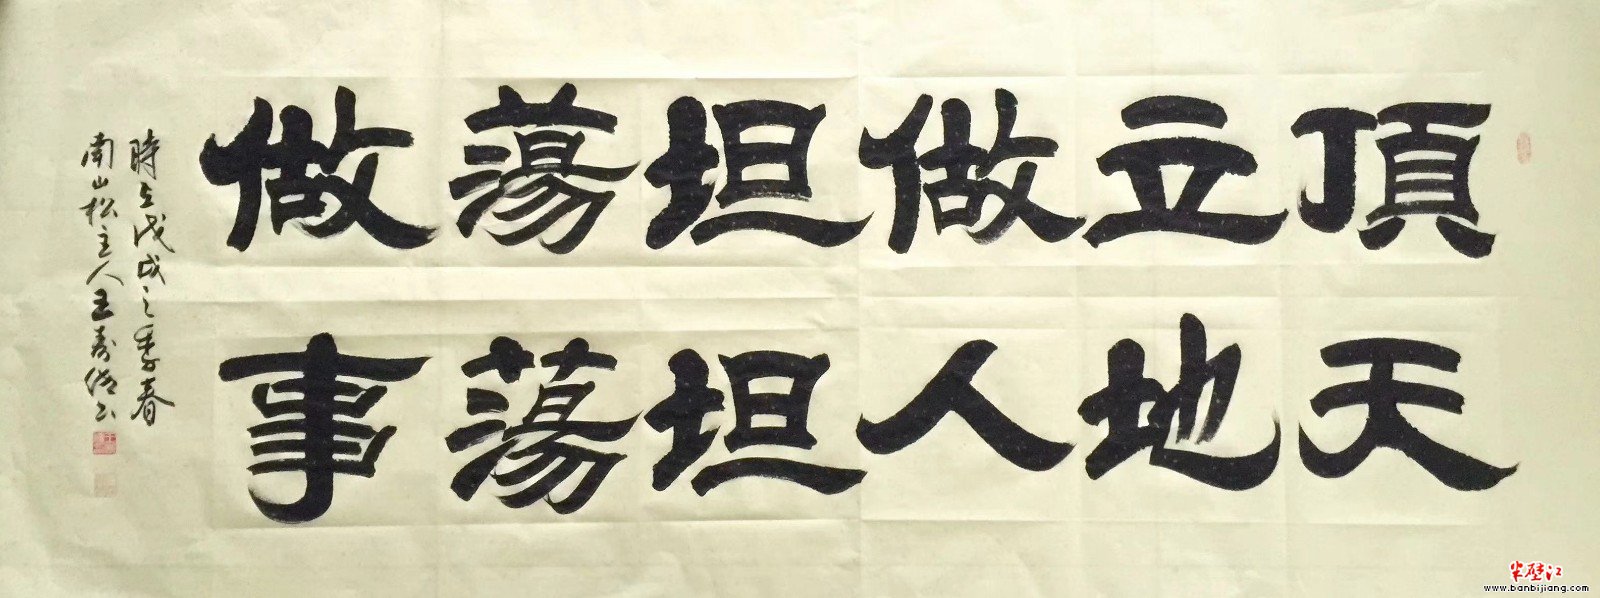 頂天
立地
做人
坦坦
蕩蕩
做事
時在戊戌之季春
南山松主人王寿书
半壁江
www.banbijiang.com